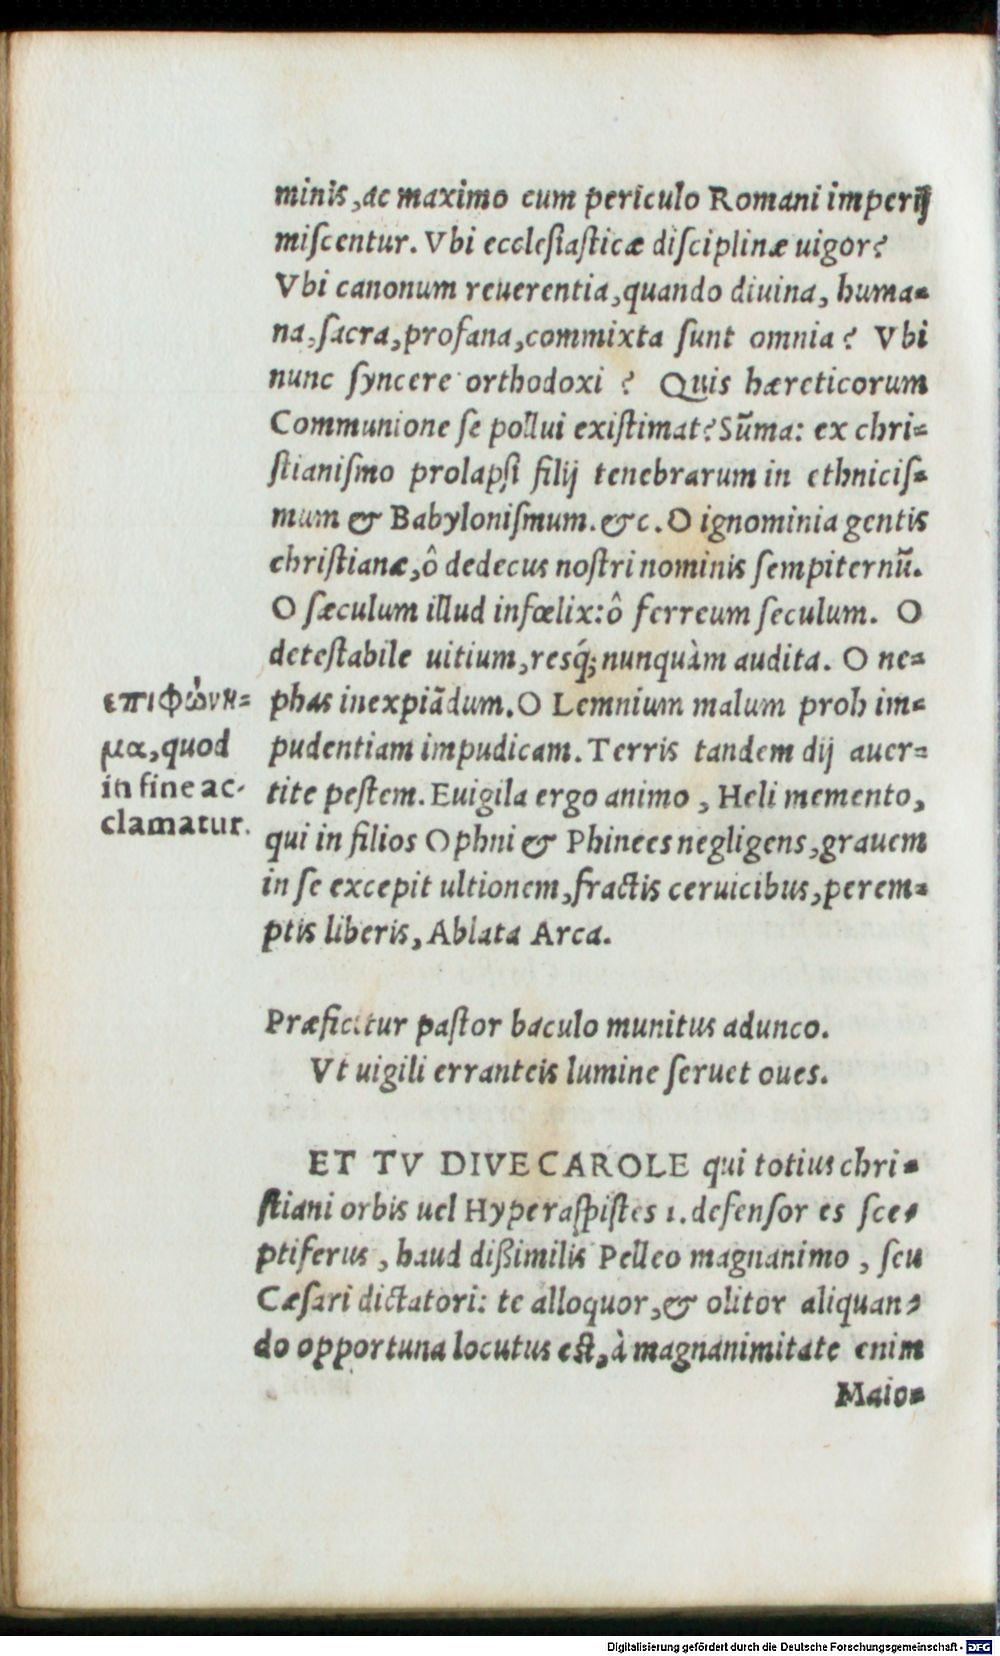 minis, ac maximo cum periculo Romani imperij
miſcentur. Vbi eccleſiaſticæ diſciplinæ uigor?
Vbi canonum reuerentia, quando diuina, huma-
na, ſacra, profana, commixta ſunt omnia? Vbi
nunc ſyncere orthodoxi? Quis hæreticorum
Communione ſe pollui exiſtimat? Sūma: ex chri-
ſtianiſmo prolapſi filij tenebrarum in ethniciſ-
mum & Babyloniſmum. &c. O ignominia gentis
chriſtianæ, ô dedecus noſtri nominis ſempiternū.
O ſæculum illud infœlix: ô ferreum ſeculum. O
deteſtabile uitium, resq́; nunquàm audita. O ne-
phas inexpiādum. O Lemnium malum proh im-
pudentiam impudicam. Terris tandem dij auer-
tite peſtem. Euigila ergo animo, Heli memento,
qui in filios Ophni & Phinees negligens, grauem
in ſe excepit ultionem, fractis ceruicibus, perem-
ptis liberis, Ablata Arca.
επιφώνη-
μα, quod
in fine ac-
clamatur.
Præficitur paſtor baculo munitus adunco.
Vt uigili erranteis lumine ſeruet oues.
ET TV DIVE CAROLE qui totius chri-
ſtiani orbis uel Hyperaſpiſtes 1. defenſor es ſce-
ptiferus, haud dißimilis Pelleo magnanimo, ſeu
Cæſari dictatori: te alloquor, & olitor aliquan-
do opportuna locutus eſt, à magnanimitate enim
Maio-
Digitalisierung gefördert durch die Deutsche Forschungsgemeinschaft - DFG